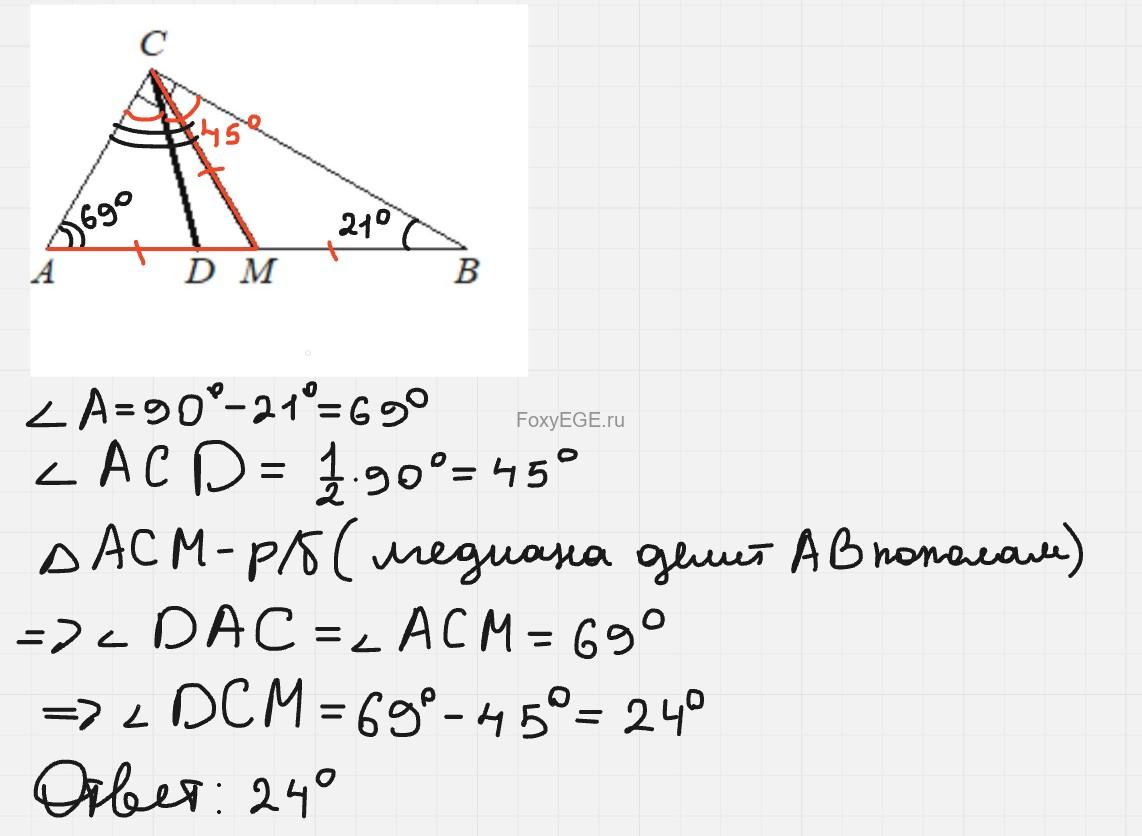 C
45°
69°
21°
A D M B
∠A=90°-21°=69°
FoxyEGE.ru
∠ ACD = 1/2·90°=45°
△ ACM - р/б (медиана делит AB пополам)
=> ∠ DAC = ∠ ACM = 69°
=> ∠ DCM = 69° - 45° = 24°
Ответ: 24°